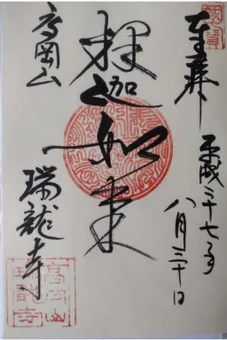 奉拝
平成二十七年
八月三十日
釋迦如来
高岡山
瑞龍寺
高岡山
瑞龍寺